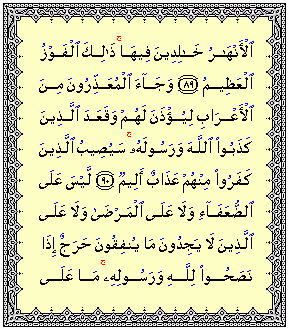 ٱلْأَنْهَـٰرُ خَـٰلِدِينَ فِيهَا ۚ ذَٰلِكَ ٱلْفَوْزُ
ٱلْعَظِيمُ ﴿٨٩﴾ وَجَآءَ ٱلْمُعَذِّرُونَ مِنَ
ٱلْأَعْرَابِ لِيُؤْذَنَ لَهُمْ وَقَعَدَ ٱلَّذِينَ
كَذَبُوا۟ ٱللَّهَ وَرَسُولَهُۥ ۚ سَيُصِيبُ ٱلَّذِينَ
كَفَرُوا۟ مِنْهُمْ عَذَابٌ أَلِيمٌ ﴿٩٠﴾ لَّيْسَ عَلَى
ٱلضُّعَفَآءِ وَلَا عَلَى ٱلْمَرْضَىٰ وَلَا عَلَى
ٱلَّذِينَ لَا يَجِدُونَ مَا يُنفِقُونَ حَرَجٌ إِذَا
نَصَحُوا۟ لِلَّهِ وَرَسُولِهِۦ ۚ مَا عَلَى